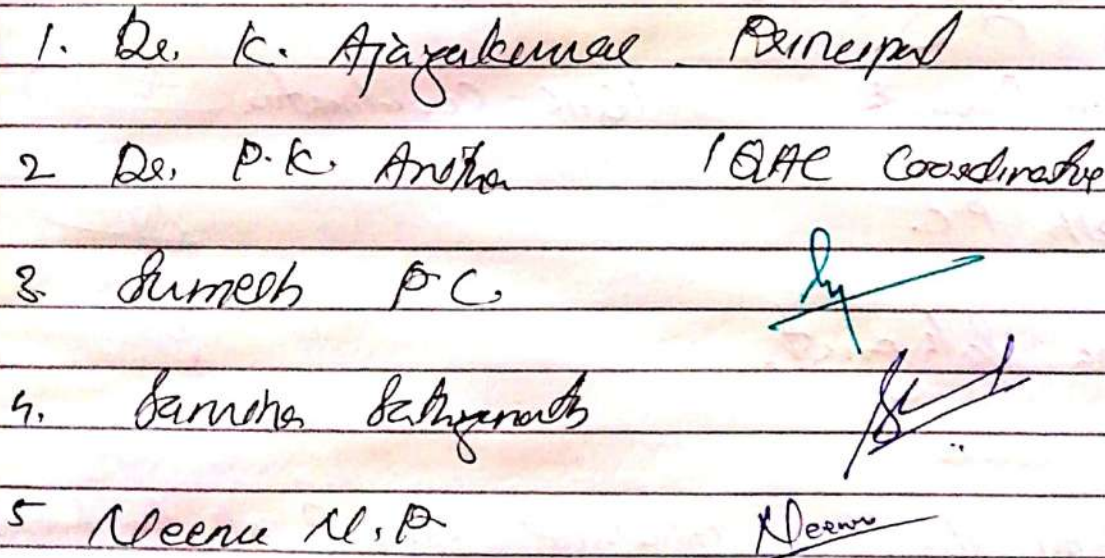 1. Dr. K. Ajayakumar Principal
2 Dr. P.K. Anitha IQAC Coordinator
3. Sumesh P C.
4. Samitha Sathyanath
5 Neenu N.P Neenu